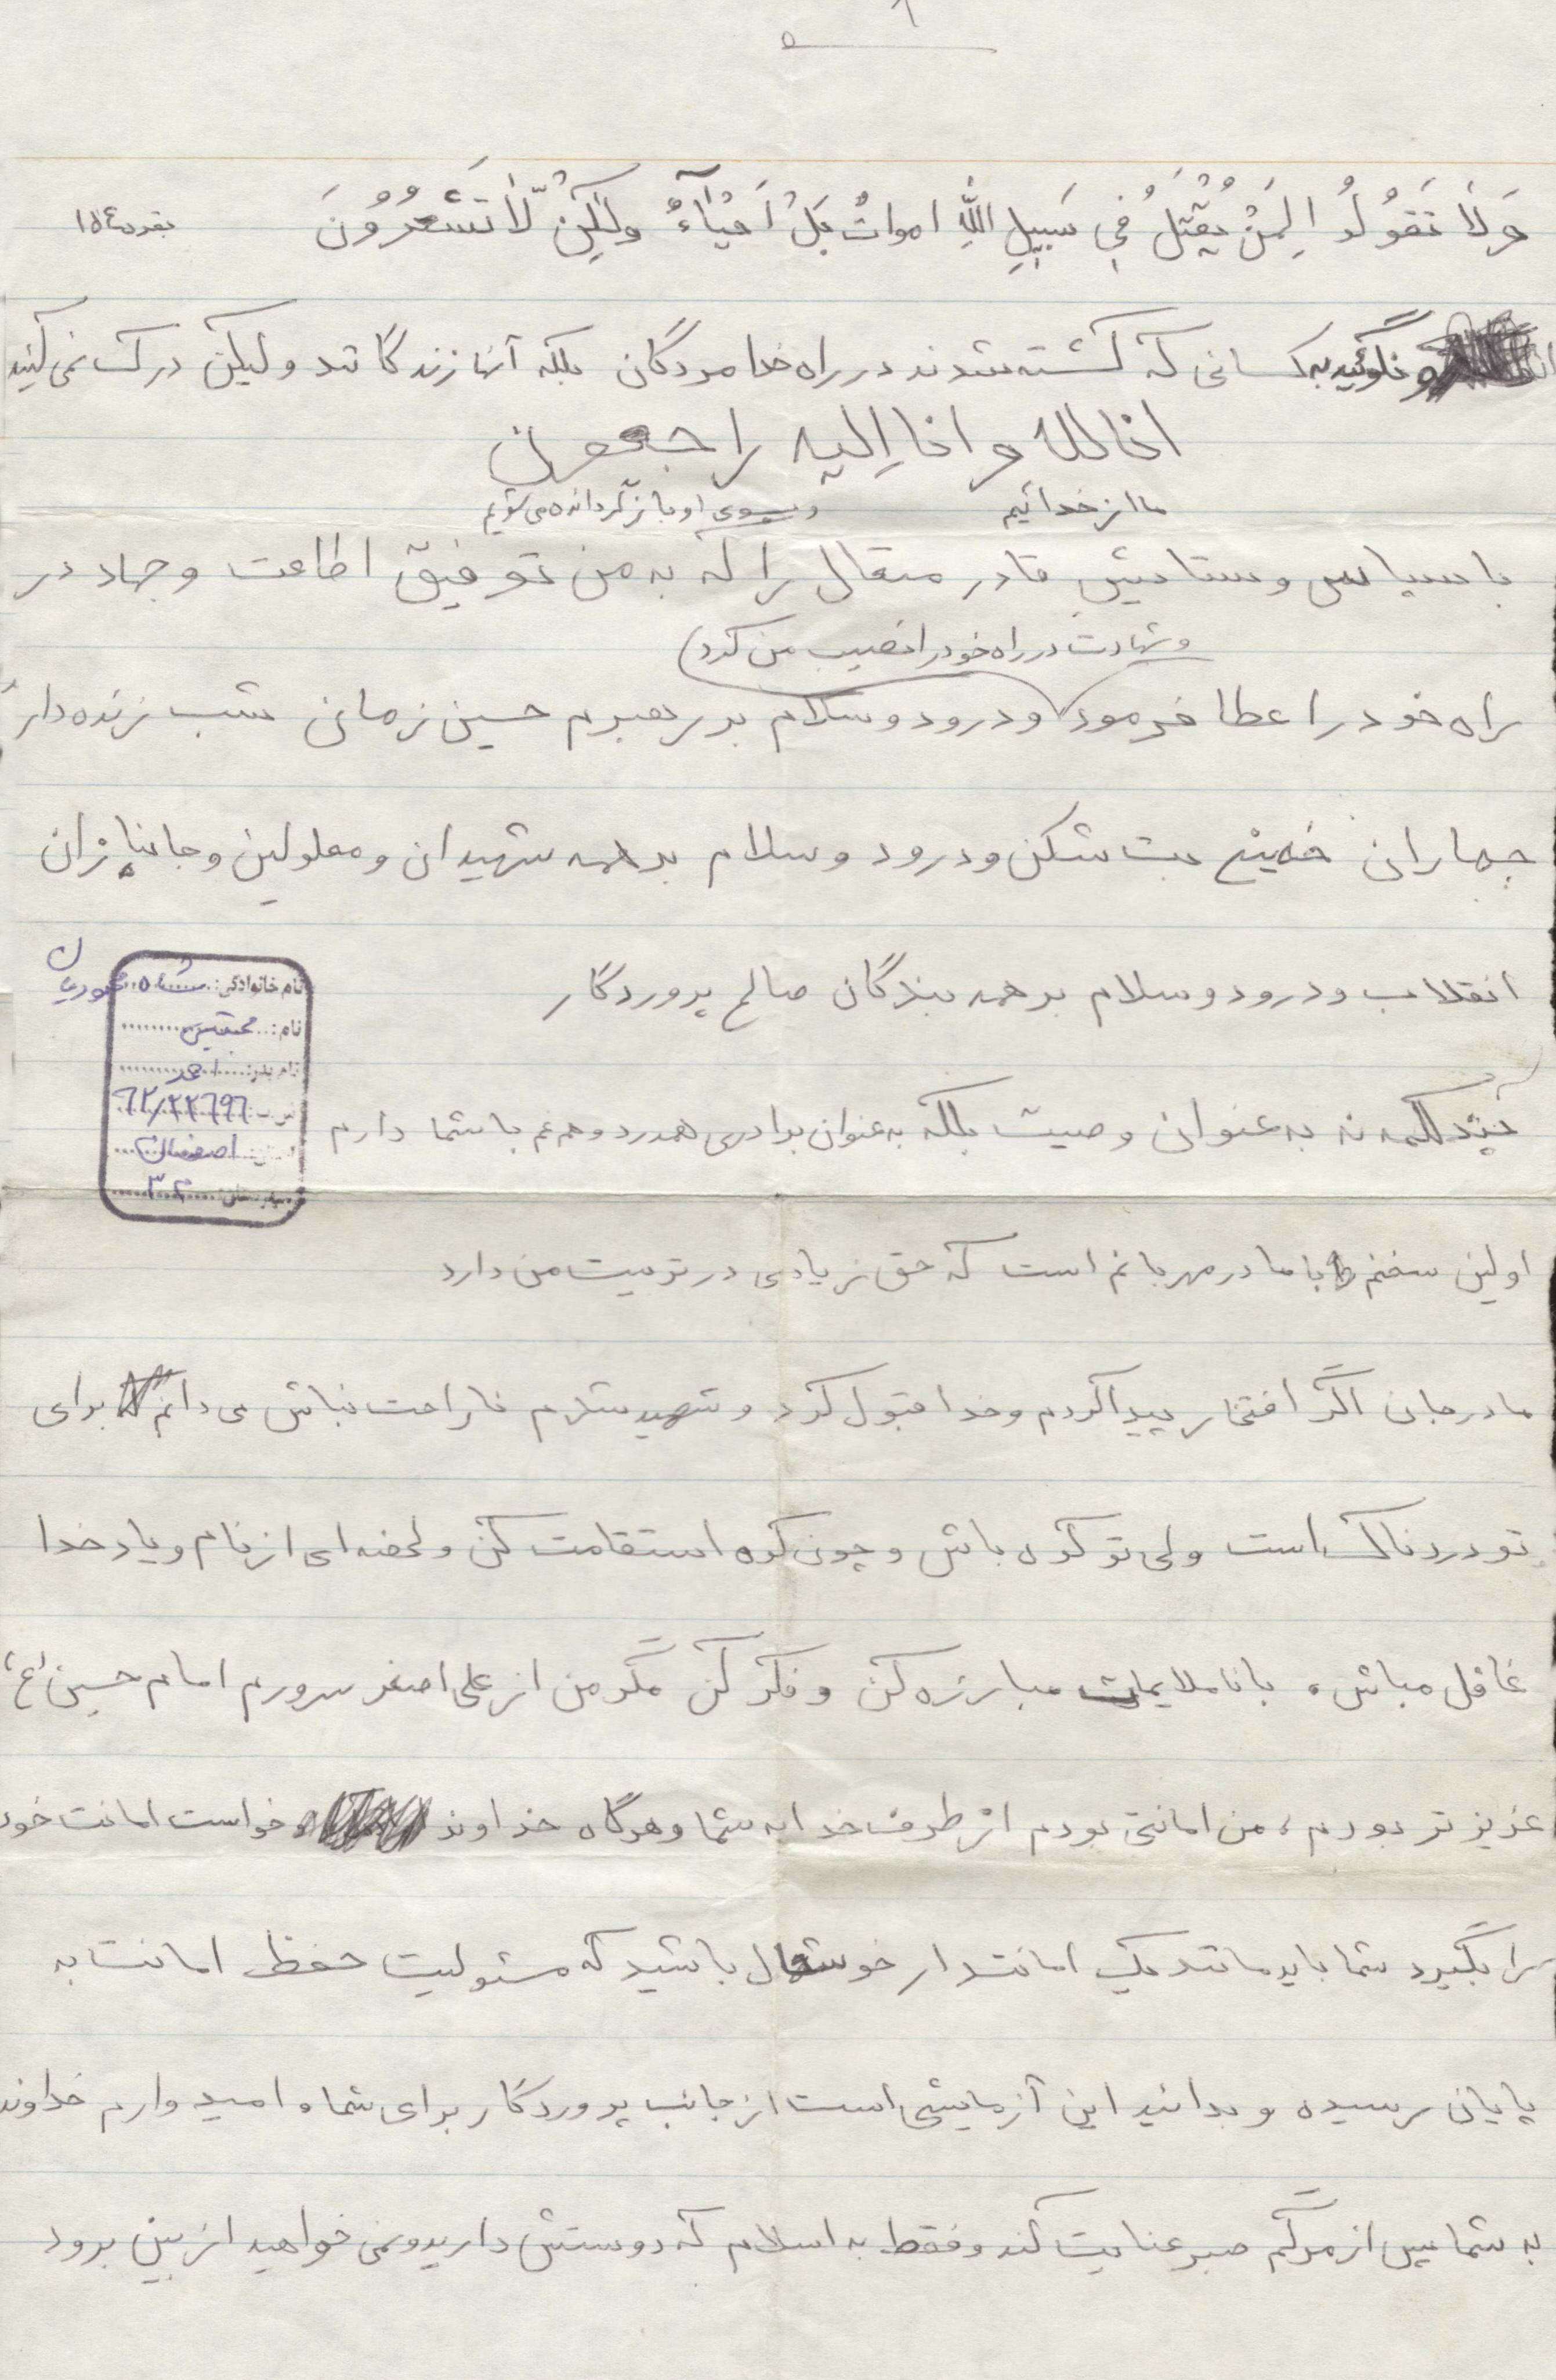 وَلاٰ تَقوُلُو اِلمَنْ یُقْتَلُ فِی سَبیٖلِ اللّٰهِ امواتٌ بَلْ اَحْیٰآءٌ ولٰکِنْ لّاٰتَشْعُرُونَ
نگوئید به کسانی که کشته شدند در راه خدا مردگان بلکه آنها زندگانند ولیکن درک نمی کنید
انا لله و انا اِلیه راجعون
ما از خدائیم و بسوی او باز گردانده می شویم
با سپاس و ستایش قادر متعال را که به من توفیق اطاعت و جهاد در
و شهادت در راه خود را نصیب من کرد)
راه خود را عطا فرمود و درود و سلام بر رهبرم حسین زمان شب زنده دار
جماران خمینی بت شکن و درود و سلام بر همه شهیدان و معلولین و جانبازان
انقلاب و درود و سلام بر همه بندگان صالح پروردگار
نام خانوادگی:
نام: مجتبی
نام پدر: احمد
۶۲/۲۲۶۹۶
اصفهان
چند کلمه نه به عنوان وصیت بلکه به عنوان برادری همدرد و هم غم با شما دارم
اولین سخنم با مادر مهربانم است که حق زیادی در تربیت من دارد
مادر جان اگر افتخار پیدا کردم و خدا قبول کرد و شهید شدم ناراحت نباش می دانم برای
تو دردناک است ولی تو کوه باش و چون کوه استقامت کن و لحضه ای از نام و یاد خدا
غافل مباش. با ناملایمات مبارزه کن و فکر کن مگر من از علی اصغر سرورم امام حسین (ع)
عزیز تر بودم، من امانتی بودم از طرف خدا به شما و هرگاه خداوند خواست امانت خود
را بگیرد شما باید مانند یک امانتدار خوشحال باشید که مسئولیت حفظ امانت به
پایان رسیده و بدانید این آزمایشی است از جانب پروردگار برای شما. امیدوارم خداوند
به شما پس از مرگم صبر عنایت کند و فقط به اسلام که دوستش دارید و نمی خواهید از بین برود